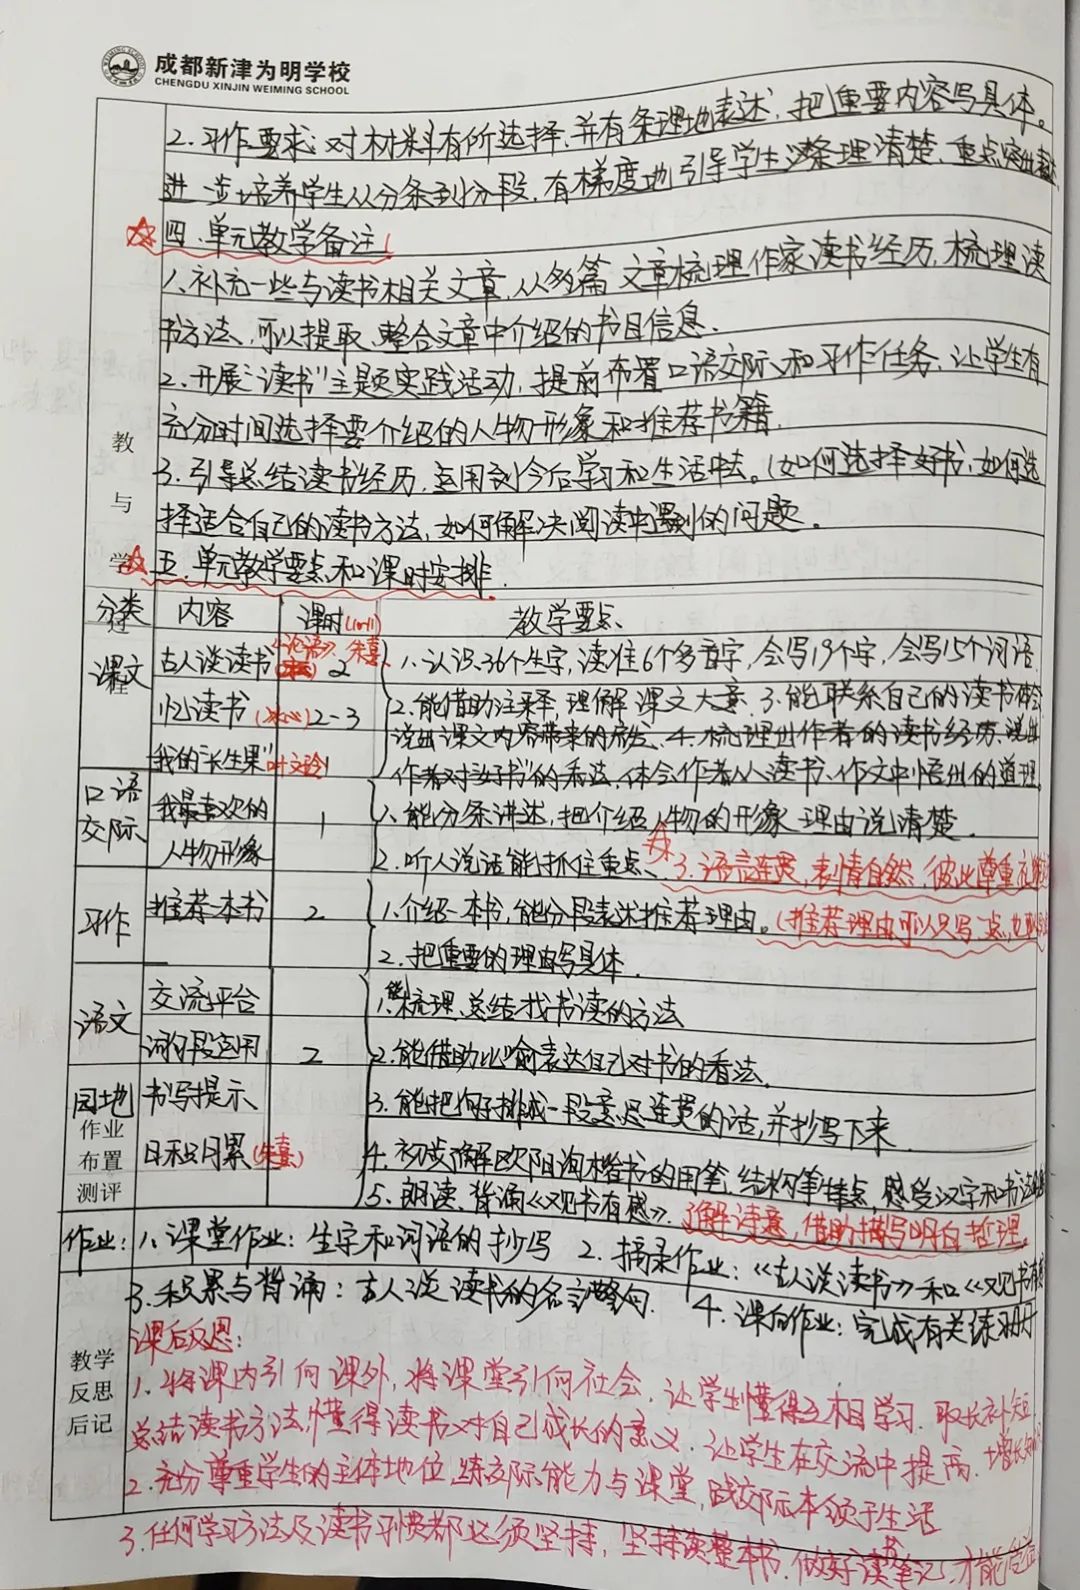 成都新津为明学校
CHENGDU XINJIN WEIMING SCHOOL
2.习作要求 对材料有所选择,并有条理地表达,把重要内容写具体。
进一步培养学生从分条到分段,有梯度地引导学生 条理清楚、重点突出表达
四.单元教学备注
1.补充一些与读书相关文章,从多篇文章梳理作家读书经历,梳理读
书方法、可以提取、整合文章中介绍的书目信息.
2.开展"读书"主题实践活动,提前布置口语交际、和习作任务,让学生有
充分时间选择要介绍的人物形象和推荐书籍.
3.引导总结读书经历,运用到今后学习和生活中去。(如何选择好书,如何选
择适合自己的读书方法,如何解决阅读中遇到的问题。
五.单元教学要点和课时安排.
教
与
学
过
程
分类 内容 课时(10-11) 教学要点
课文 古人谈读书《论语》、朱熹 2 1.认识36个生字,读准6个多音字,会写19个字,会写15个词语.
忆读书(冰心)2-3 2.能借助注释,理解课文大意.3.能联系自己的读书体会
说出课文内容带来的启发、4.梳理出作者的读书经历、说出
我的"长生果"叶文玲 1 作者对"好书"的看法,体会作者从读书、作文中悟出的道理.
口语交际 我最喜欢的人物形象 1 1.能分条讲述,把介绍人物的形象 理由说清楚.
2.听人说话能抓住重点、3.语言连贯,表情自然,彼此尊重
习作 推荐一本书 2 1.介绍一本书,能分段表述推荐理由。(推荐理由可以只写一点,也
2.把重要的理由写具体.
语文园地 交流平台 1.能梳理、总结找书读的方法
词句段运用 2 2.能借助比喻表达自己对书的看法.
书写提示 3.能把句子排成一段意思连贯的话,并抄写下来
日积月累(朱熹) 4.初步了解欧阳询楷书的用笔、结构等特点,感受汉字和书法
5.朗读、背诵《观书有感》.了解诗意,借助描写明白哲理.
作业
布置
测评
作业:1、课堂作业:生字和词语的抄写 2.摘录作业:《古人谈读书》和《观书有感
3.积累与背诵:古人谈读书的名言警句. 4.课后作业:完成有关练习册
教学
反思
后记
课后反思:
1.将课内引向课外,将课堂引向社会,让学生懂得互相学习.取长补短
总结读书方法,懂得读书对自己成长的意义.让学生在交流中提高.增长
2.充分尊重学生的主体地位,练交际能力与课堂,成交际本领于生活
3.任何学习方法及读书习惯都必须坚持,坚持读整本书.做好读书笔记,才能